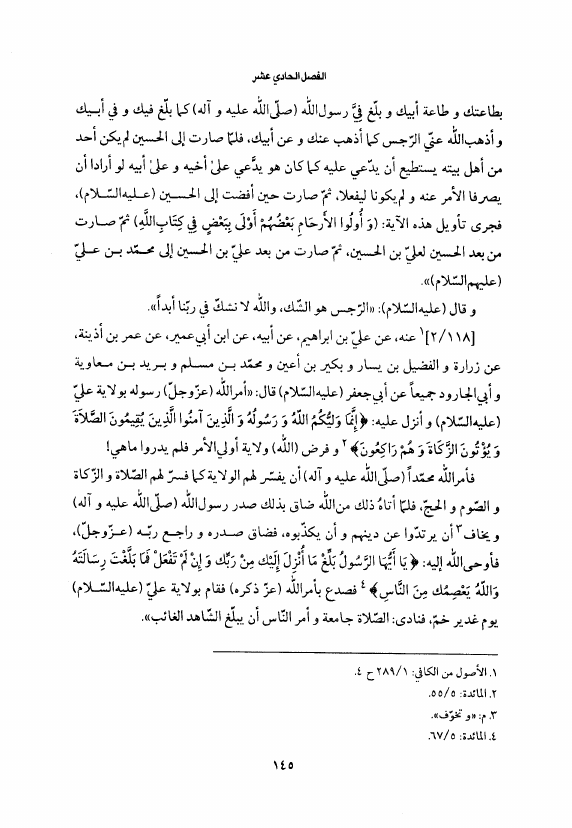 الفصل الحادي عشر
بطاعتك و طاعة أبيك و بلّغ فيَّ رسول‌الله (صلّى‌الله عليه و آله) كما بلّغ فيك و في أبـيك
و أذهب‌الله عنّي الرّجس كما أذهب عنك و عن أبيك، فلمّا صارت إلى الحسين لم‌يكن أحد
من أهل بيته يستطيع أن يدّعي عليه كما كان هو يدَّعي علىٰ أخيه و علىٰ أبيه لو أرادا أن
يصرفا الأمر عنه و لم‌يكونا ليفعلا، ثمّ صارت حين أفضت إلى الحسـين (عـليه‌السّـلام)،
فجرى تأويل هذه الآية: (وَ أُولُوا الأَرحَامِ بَعْضُهُمْ أَوْلَى بِبَعْضٍ فِي كِتَابِ‌اللَّهِ) ثمّ صـارت
من بعد الحسين لعليّ بن الحسين، ثمّ صارت من بعد عليّ بن الحسين إلى محـمّد بـن عـليّ
(عليهم‌السّلام)».
و قال (عليه‌السّلام): «الرّجس هو الشّك، والله لا نشكّ في ربّنا أبداً».
[٢/١١٨]١ عنه، عن عليّ بن ابراهيم، عن أبيه، عن ابن أبي‌عمير، عن عمر بن أذينة،
عن زرارة و الفضيل بن يسار و بكير بن أعين و محمّد بـن مسـلم و بـريد بـن مـعاوية
و أبي‌الجارود جميعاً عن أبي‌جعفر (عليه‌السّلام) قال: «أمرالله (عزّوجلّ) رسوله بولاية عليّ
(عليه‌السّلام) و أنزل عليه: ﴿إِنَّمَا وَلِيُّكُمُ اللَّهُ وَ رَسُولُهُ وَ الَّذِينَ آمَنُوا الَّذِينَ يُقِيمُونَ الصَّلاَةَ
وَ يُؤْتُونَ الزَّكَاةَ وَ هُمْ رَاكِعُونَ﴾٢ و فرض (الله) ولاية أولي‌الأمر فلم يدروا ماهي!
فأمرالله محمّداً (صلّى‌الله عليه و آله) أن يفسّر لهم الولاية كما فسرّ لهم الصّلاة و الزّكاة
و الصّوم و الحجّ، فلمّا أتاهُ ذلك من‌الله ضاق بذلك صدر رسول‌الله (صلّى‌الله عليه و آله)
و يخاف٣ أن يرتدّوا عن دينهم و أن يكذّبوه، فضاق صـدره و راجـع ربّـه (عـزّوجلّ)،
فأوحى‌الله إليه: ﴿يَا أَيُّهَا الرَّسُولُ بَلِّغْ مَا أُنْزِلَ إِلَيْكَ مِنْ رَبِّكَ وَ إِنْ لَمْ تَفْعَلْ فَمَا بَلَّغْتَ رِسَالَتَهُ
وَاللَّهُ يَعْصِمُكَ مِنَ النَّاسِ﴾٤ فصدع بأمرالله (عزّ ذكره) فقام بولاية عليّ (عليه‌السّـلام)
يوم غدير خمّ، فنادى: الصّلاة جامعة و أمر النّاس أن يبلّغ الشّاهد الغائب».
١. الأصول من الكافي: ٢٨٩/١ ح ٤.
٢. المائدة: ٥٥/٥.
٣. م: «و تخوّف».
٤. المائدة: ٦٧/٥.
١٤٥